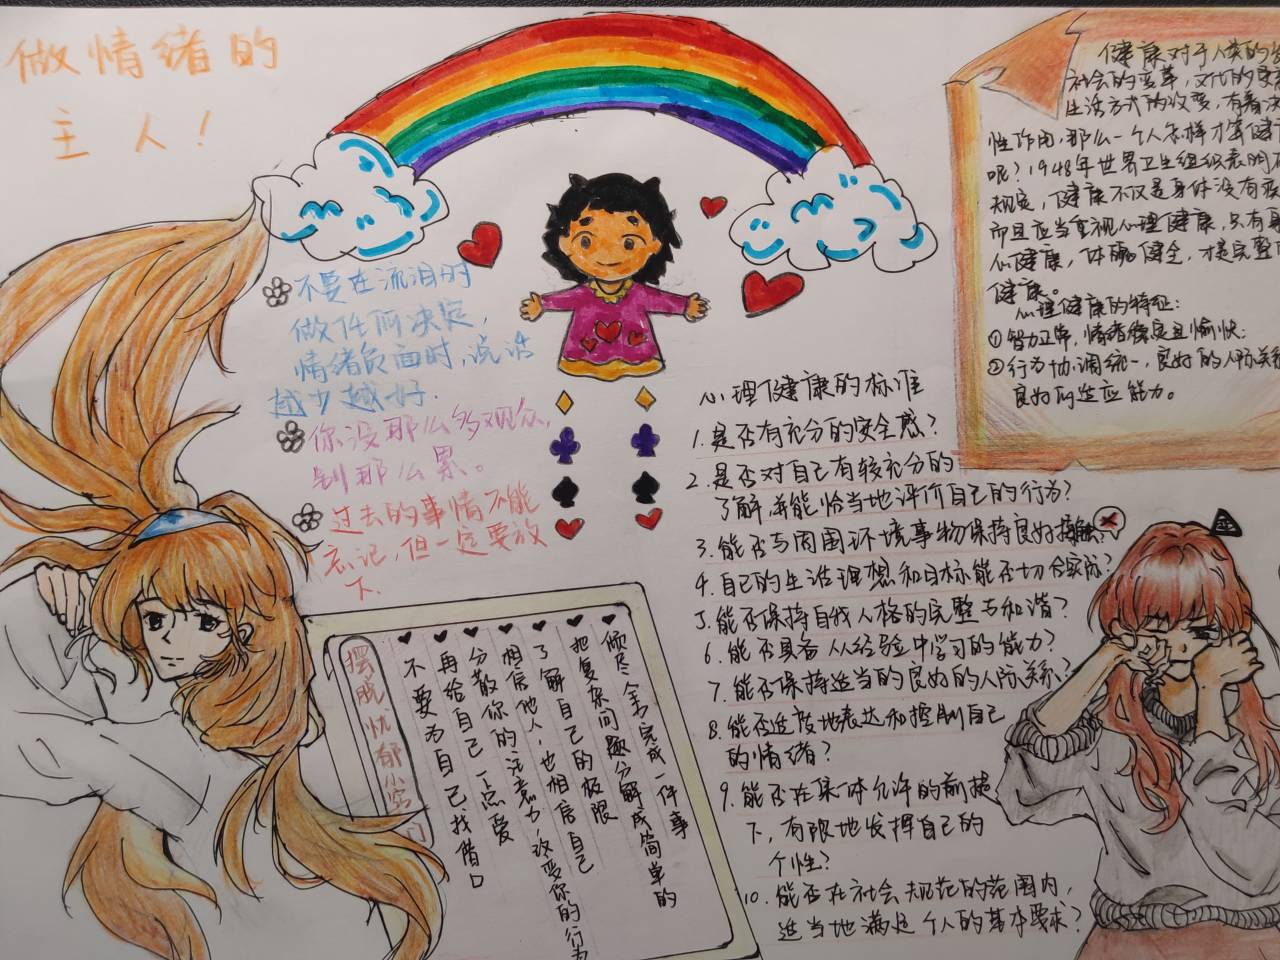 做情绪的
主人！
不要在流泪时
做任何决定，
情绪负面时，说话
越少越好.
你没那么多观众，
别那么累。
过去的事情不能
忘记，但一定要放
下.
摆脱忧郁小窍门
倾尽全力完成一件事
把复杂问题分解成简单的
了解自己的极限
相信他人，也相信自己
分散你的注意力，改变你的行为
再给自己一点爱
不要为自己找借口
心理健康的标准
1.是否有充分的安全感？
2.是否对自己有较充分的
了解并能恰当地评价自己的行为？
3.能否与周围环境事物保持良好接触？
4.自己的生活理想和目标能否切合实际？
5.能否保持自我人格的完整与和谐？
6.能否具备从经验中学习的能力？
7.能否保持适当的良好的人际关系？
8.能否适度地表达和控制自己
的情绪？
9.能否在集体允许的前提
下，有限地发挥自己的
个性？
10.能否在社会规范的范围内，
适当地满足个人的基本要求？
健康对于人类的
社会的变革，文化的
生活方式的改变，有着
性作用，那么一个人怎样才算健
呢？1948年世界卫生组织表明
规定，健康不仅是身体没有
而且应当重视心理健康，只有
心健康，体魄健全，才是完整
健康。
心理健康的特征：
①智力正常，情绪稳定且愉快；
②行为协调统一，良好的人际关
良好的适应能力。